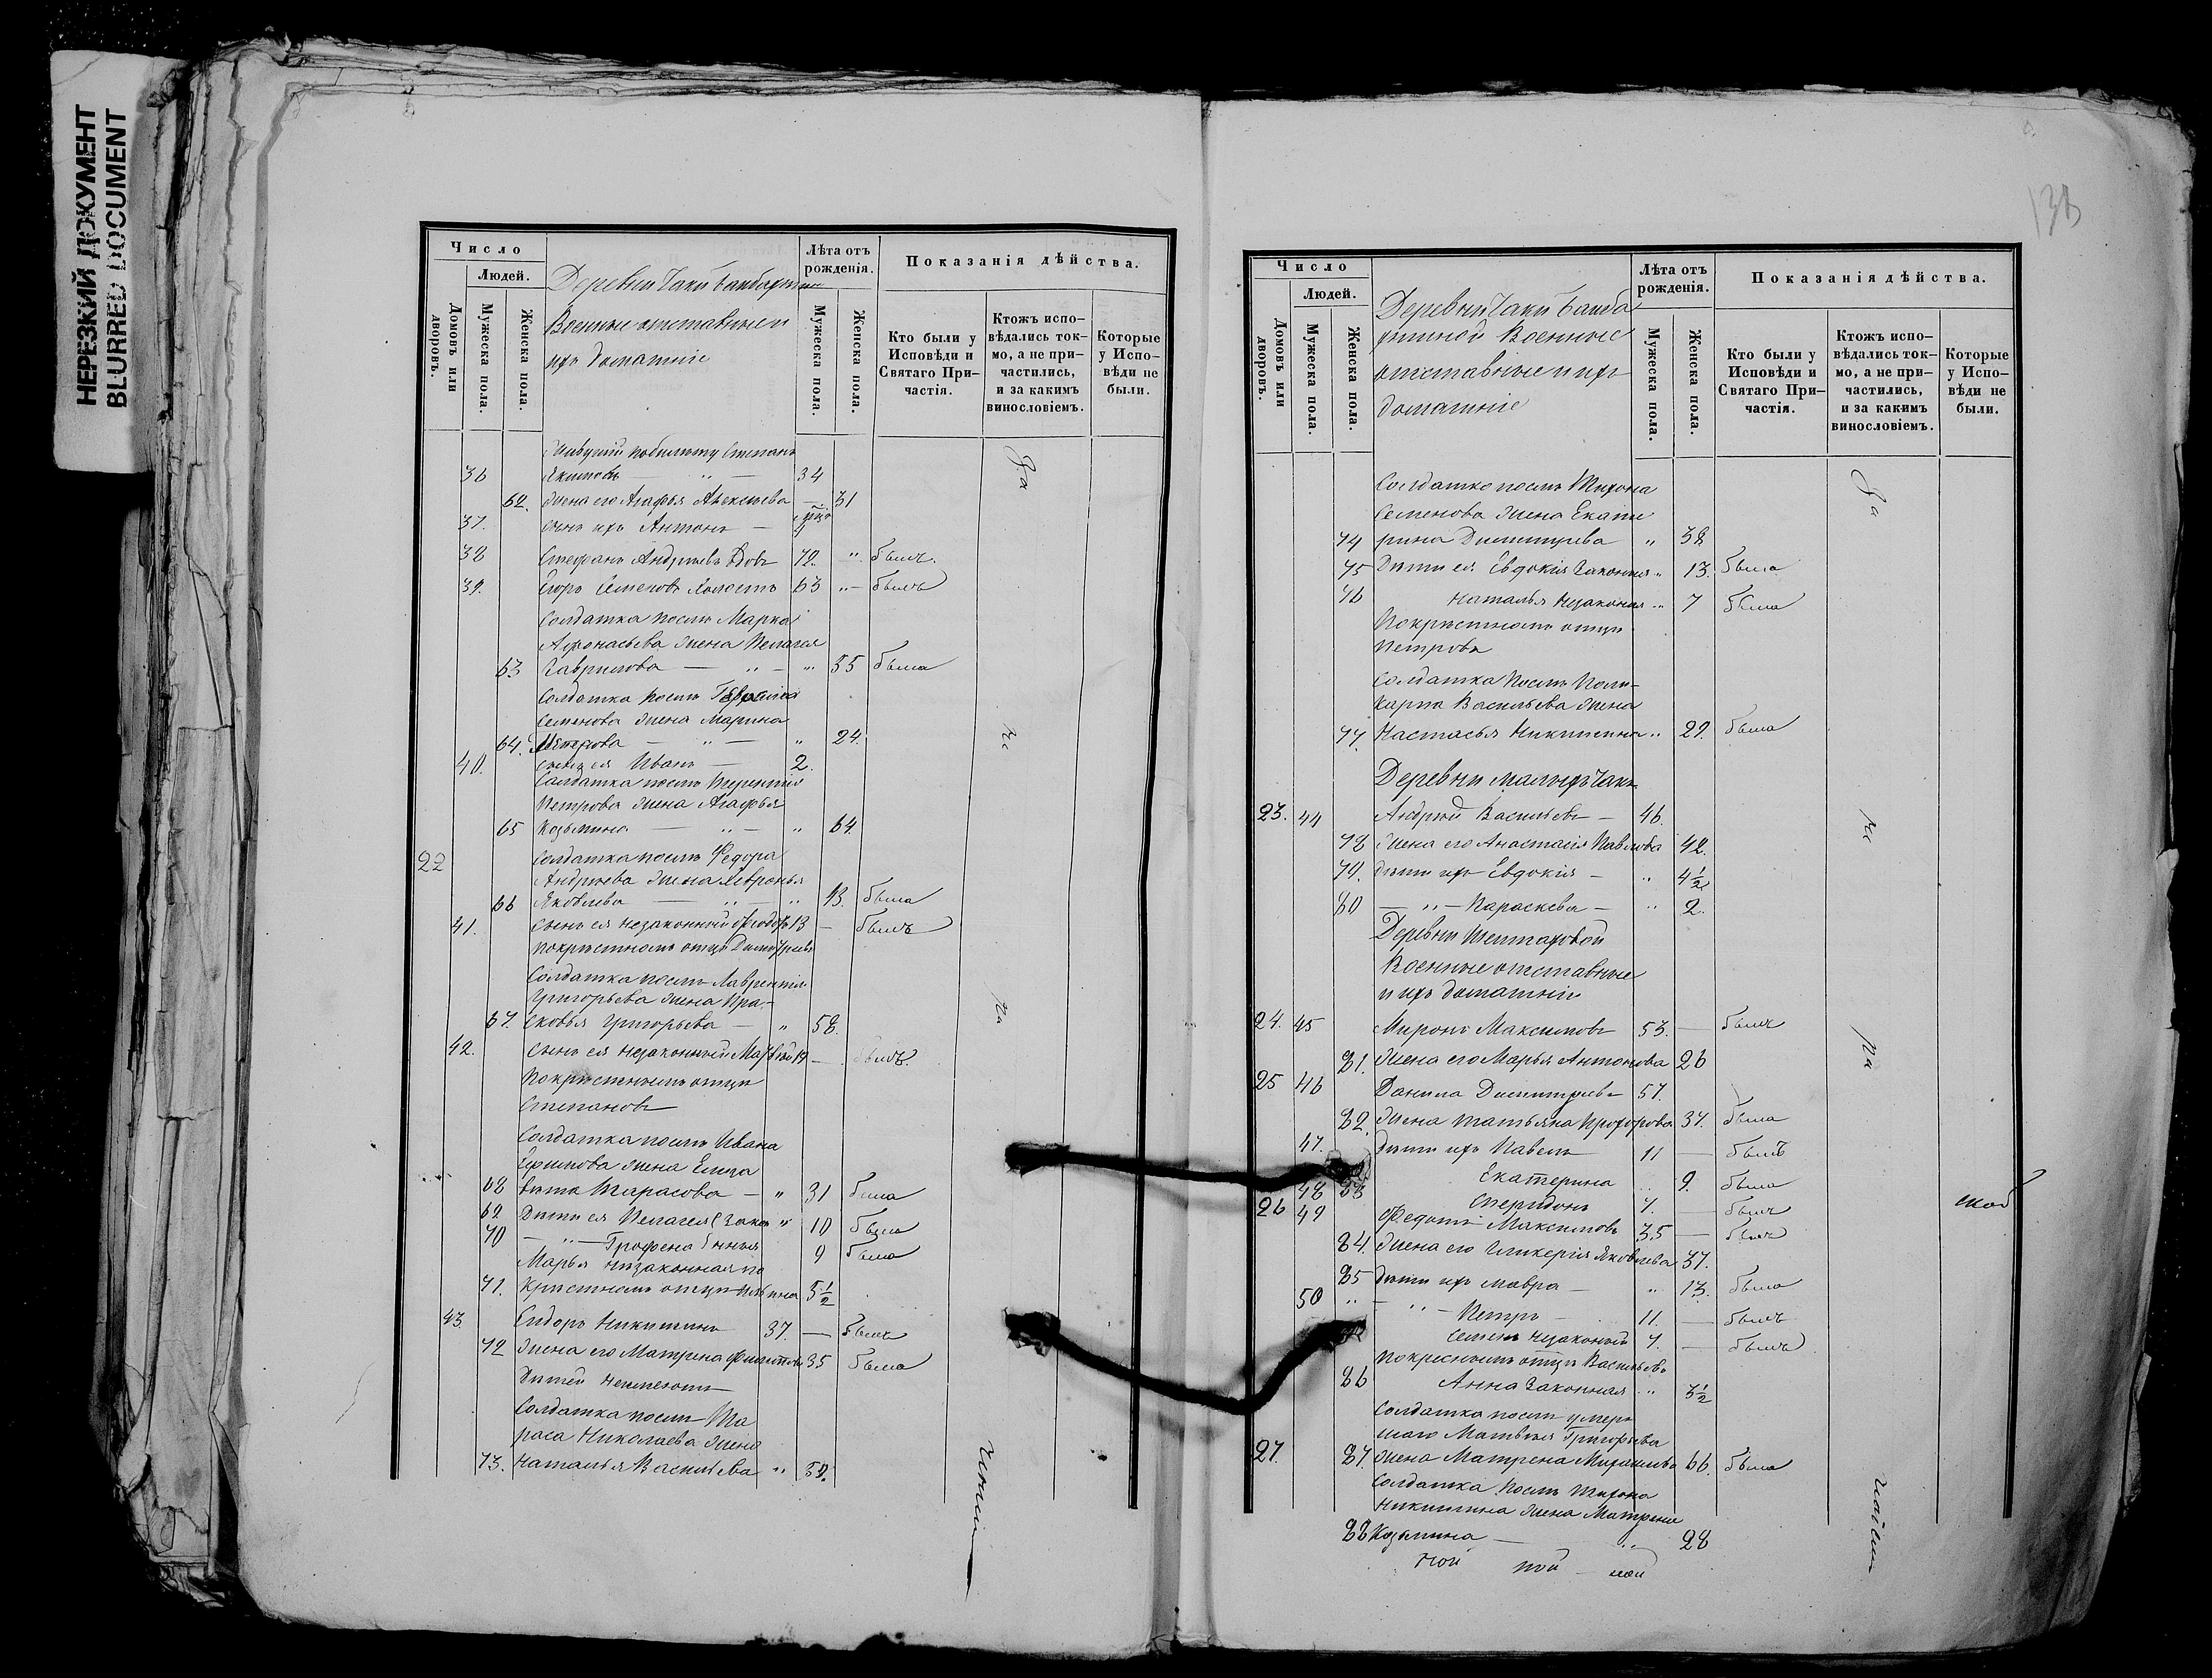 НЕРЕЗКИЙ ДОКУМЕНТ
BLURRED DOCUMENT
Число
Людей.
Домовъ или дворовъ.
Мужеска пола.
Женска пола.
Деревни Чаки
Военные отставные и
ихъ домашніе
Лѣта отъ рожденія.
Мужеска пола.
Женска пола.
Показанія дѣйства.
Кто были у Исповѣди и Святаго Причастія.
Ктожъ исповѣдались токмо, а не причастились, и за какимъ винословіемъ.
Которые у Исповѣди не были.
Живущій по билету Степанъ
36 Якимовъ — 34
62. Жена его Агафья Алексѣева — 31
37. Сынъ ихъ Антонъ —
38 Стефанъ Андреевъ Вдовъ 72. " былъ
39. Егоръ Семеновъ Холостъ 63 " былъ
Солдатка послѣ Марка
Афонасьева жена Пелагея
63 Гаврилова — " 55 была
Солдатка послѣ Герасима
Семенова жена Марина
64. Петрова — " 24.
40. Сынъ ея Иванъ — 2.
Солдатка послѣ Терентія
Петрова жена Агафья
65 Козьмина — " 64.
22 Солдатка послѣ Федора
Андреева жена Хевронья
66 Яковлева — " была
41. Сынъ ея незаконный Феодоръ 13 — былъ
По крестномъ отцѣ Димитріевъ
Солдатка послѣ Лаврентія
Григорьева жена Пра-
67. сковья Григорьева — " 58.
42. Сынъ ея незаконный Матвѣй 19 — былъ.
По крестномъ отцѣ
Степановъ
Солдатка послѣ Ивана
Ефимова жена Елиза
68 вета Тарасова — " 31 была
69 Дѣти ея Пелагея (закон " 10 была
70 — " — Графена (нныя 9 была
Марья незаконная по
71. крестномъ отцѣ 5½
43. Сидоръ Никитинъ 37. — былъ
72 Жена его Матрена Филатова 35 была
Дѣтей неимеютъ
Солдатка послѣ Та
раса Николаева жена
73. Наталья Васильева "
138
Число
Людей.
Домовъ или дворовъ.
Мужеска пола.
Женска пола.
Деревни Чаки
Военные
отставные и ихъ
домашніе
Лѣта отъ рожденія.
Мужеска пола.
Женска пола.
Показанія дѣйства.
Кто были у Исповѣди и Святаго Причастія.
Ктожъ исповѣдались токмо, а не причастились, и за какимъ винословіемъ.
Которые у Исповѣди не были.
Солдатка послѣ Тихона
Семенова жена Екате
74 рина Димитріева " 38
75 Дѣти ея Евдокія законная " 13. была
76 Наталья незаконная " 7 была
По крестномъ отцѣ
Петрова
Солдатка послѣ Поли-
карпа Васильева жена
77. Настасья Никитина " 29. была
Деревни Малыхъ Чакъ
23. 44 Андрей Васильевъ — 46.
78 Жена его Анастасія Павлова 42.
79. Дѣти ихъ Евдокія — " 4½
80 — " — Параскева — " 2.
Деревни
Военные отставные
и ихъ домашніе
24. 45 Миронъ Максимовъ 53. — былъ
81. Жена его Марья Антонова 26
25 46 Данила Димитріевъ 51.
82. Жена Татьяна Прохорова 37. была
47. Дѣти ихъ Павелъ 11 — былъ
83 Екатерина " 9. была
48 Спиридонъ 7. — былъ
26 49 Федотъ Максимовъ 35 — былъ
84. Жена его Гликерія Яковлева 37.
85 Дѣти ихъ Мавра — " 13. была
50 " — " — Петръ — 11. — былъ
Семенъ незаконый 7. — былъ
По кресномъ отцѣ Васильевъ
86 Анна законная " 3½
Солдатка послѣ умер
шаго Матвѣя Григорьева
27. 87. жена Матрена Михаилова 66. была
Солдатка послѣ Тихона
Никитина жена Матрена
88 Козьмина — " 28